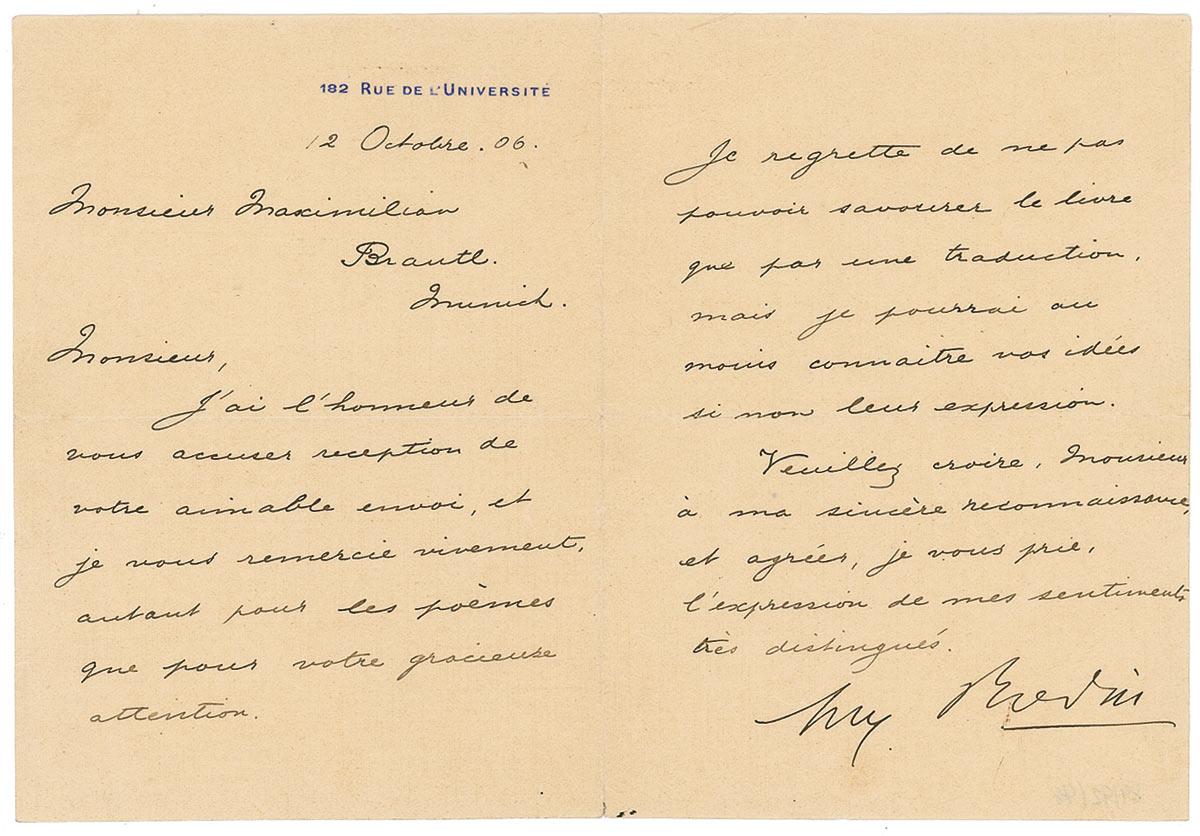 182 RUE DE L'UNIVERSITÉ
12 Octobre. 06.
Monsieur Maximilian
Brautl.
Munich.
Monsieur,
J'ai l'honneur de
vous accuser reception de
votre aimable envoi, et
je vous remercie vivement,
autant pour les poèmes
que pour votre gracieuse
attention.
Je regrette de ne pas
pouvoir savourer le livre
que par une traduction,
mais je pourrai au
moins connaitre vos idées
si non leur expression.
Veuillez croire, Monsieur
à ma sincère reconnaissance,
et agréer, je vous prie,
l'expression de mes sentiments
très distingués.
Aug Rodin